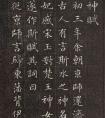 神賦
初三年余朝京師還濟
古人有言斯水之神
感宋玉對楚王神女
遂作斯賦其詞曰
從京師言歸東藩背伊